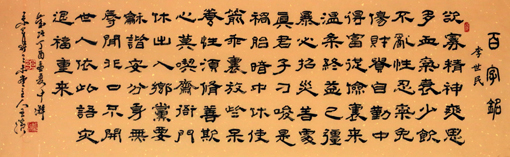 百字銘
李世民
說寡精神爽思
多血氣衰少飲
不亂性忍氣免
傷財貴自勤中
得富從儉裏來
溫柔終益己彊
暴必招災善處
真君子刁唆是
禍胎暗中休使
箭乖裏放些呆
養性須脩善欺
心莫喫齋衙門
休出入鄉黨要
龢諧安分身無
辱閒非口不開
世人依此語灾
退福重來
丁酉孟夏中澣